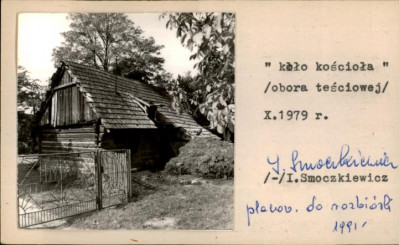 " koło kościoła "
/obora teściowej/
X.1979 r.
I. Smoczkiewicz
/-/I.Smoczkiewicz
planow. do rozbiórki
1991r